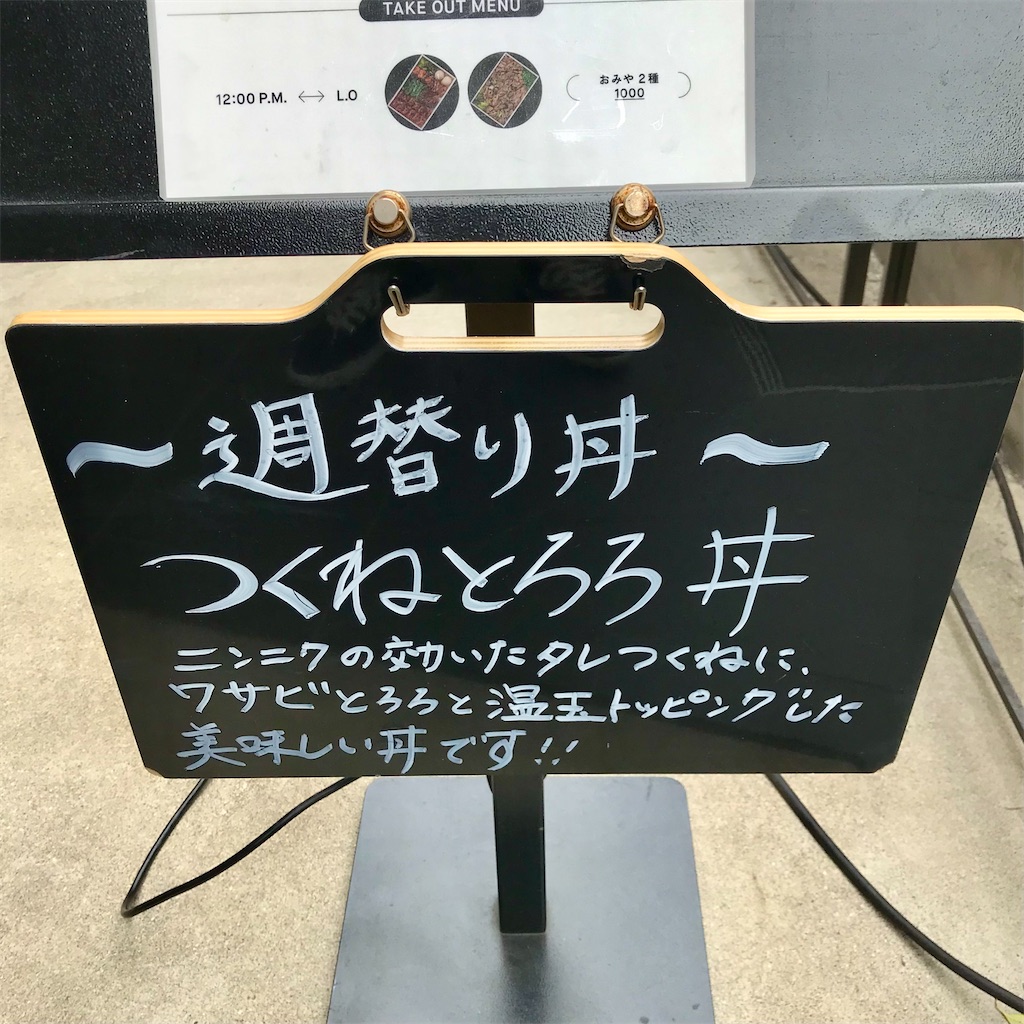 TAKE OUT MENU
12:00 P.M. ↔ L.O
おみや2種
1000
〜週替り丼〜
つくねとろろ丼
ニンニクの効いたタレつくねに、
ワサビとろろと温玉トッピングした
美味しい丼です!!